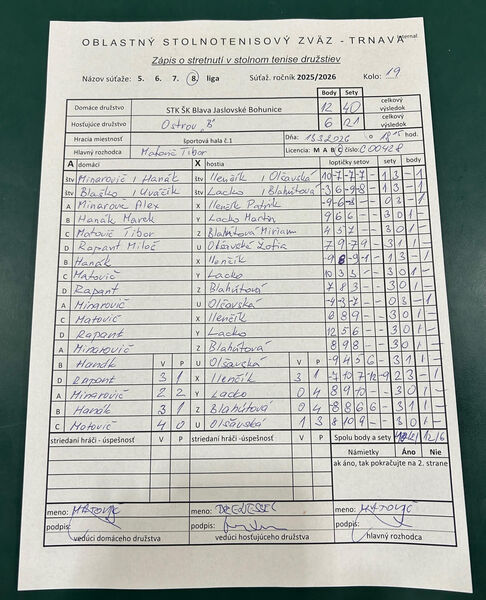 Internal
OBLASTNÝ STOLNOTENISOVÝ ZVÄZ - TRNAVA
Zápis o stretnutí v stolnom tenise družstiev
Názov súťaže: 5. 6. 7. 8. liga Súťaž. ročník 2025/2026 Kolo: 19
Body Sety
Domáce družstvo STK ŠK Blava Jaslovské Bohunice 12 40 celkový výsledok
Hosťujúce družstvo Ostrov „B" 6 21 celkový výsledok
Hracia miestnosť športová hala č.1 Dňa: 13.3.2026 o 18 15 hod.
Hlavný rozhodca Matovič Tibor Licencia: M A B C číslo: C00428
A domáci X hostia loptičky setov sety body
štv Minarovič i Hanák štv Ilenčík i Olšavská 10 -7 -7 -7 - 1 3 - 1
štv Blaško i Uváčik štv Lacko i Blahútová -3 6 -9 -8 - 1 3 - 1
A Minarovič Alex X Ilenčík Patrik -9 -6 -3 - - 0 3 - 1
B Hanák Marek Y Lacko Martin 9 6 6 - - 3 0 1 -
C Matovič Tibor Z Blahútová Miriam 4 5 7 - - 3 0 1 -
D Rapant Miloš U Olšavská Žofia 7 9 -7 9 - 3 1 1 -
B Hanák X Ilenčík -9 8 -9 -1 - 1 3 - 1
C Matovič Y Lacko 10 3 3 - - 3 0 1 -
D Rapant Z Blahútová 7 8 3 - - 3 0 1 -
A Minarovič U Olšavská -9 -3 -7 - - 0 3 - 1
C Matovič X Ilenčík 6 8 9 - - 3 0 1 -
D Rapant Y Lacko 12 5 6 - - 3 0 1 -
A Minarovič Z Blahútová 8 9 8 - - 3 0 1 -
B Hanák V P U Olšavská V P -9 4 5 6 - 3 1 1 -
D Rapant 3 1 X Ilenčík 3 1 -7 10 7 -12 -9 2 3 - 1
A Minarovič 2 2 Y Lacko 0 4 8 9 10 - - 3 0 1 -
B Hanák 3 1 Z Blahútová 0 4 -8 8 6 6 - 3 1 1 -
C Matovič 4 0 U Olšavská 1 3 8 10 9 - - 3 0 1 -
striedaní hráči - úspešnosť V P striedaní hráči -úspešnosť V P Spolu body a sety 12/6
Námietky Áno Nie
ak áno, tak pokračujte na 2. strane
meno: MATOVIČ meno: meno: MATOVIČ
podpis: podpis: podpis:
vedúci domáceho družstva vedúci hosťujúceho družstva hlavný rozhodca